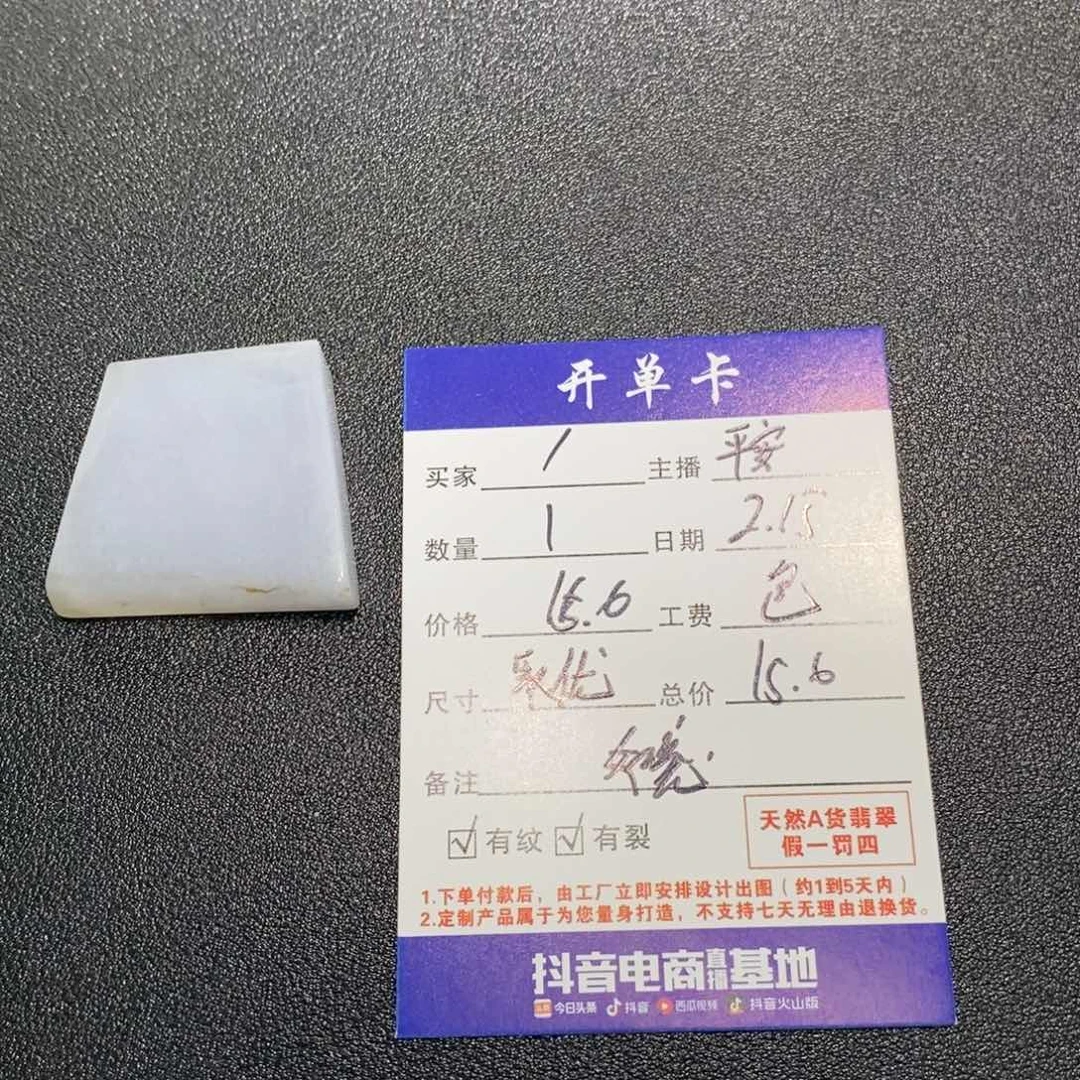 开单卡
买家 / 主播 平安
数量 1 日期 2.15
价格 15.6 工费 包
尺寸 总价 15.6
备注
☑有纹 ☑有裂
天然A货翡翠
假一罚四
1.下单付款后，由工厂立即安排设计出图（约1到5天内）
2.定制产品属于为您量身打造，不支持七天无理由退换货。
抖音电商直播基地
今日头条 抖音 西瓜视频 抖音火山版